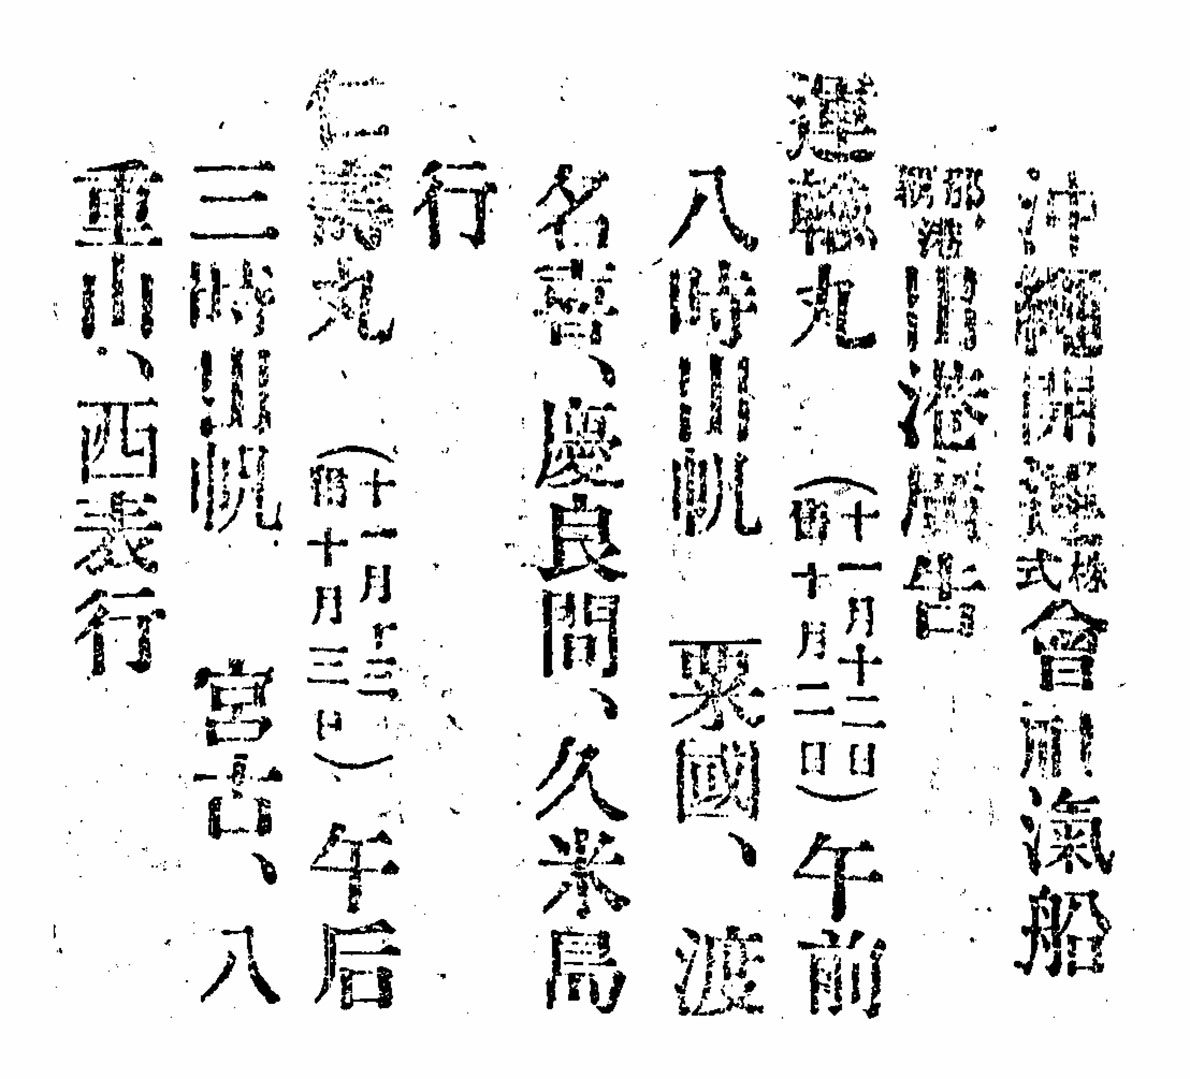 沖繩開運株式會社滊船
那覇港出港廣告
運輸丸 (十一月十二日舊十月二日)午前
八時出帆 粟國、渡
名喜、慶良間、久米島
行
仁壽丸 (十一月十三日舊十月三日)午后
三時出帆 宮古、八
重山、西表行